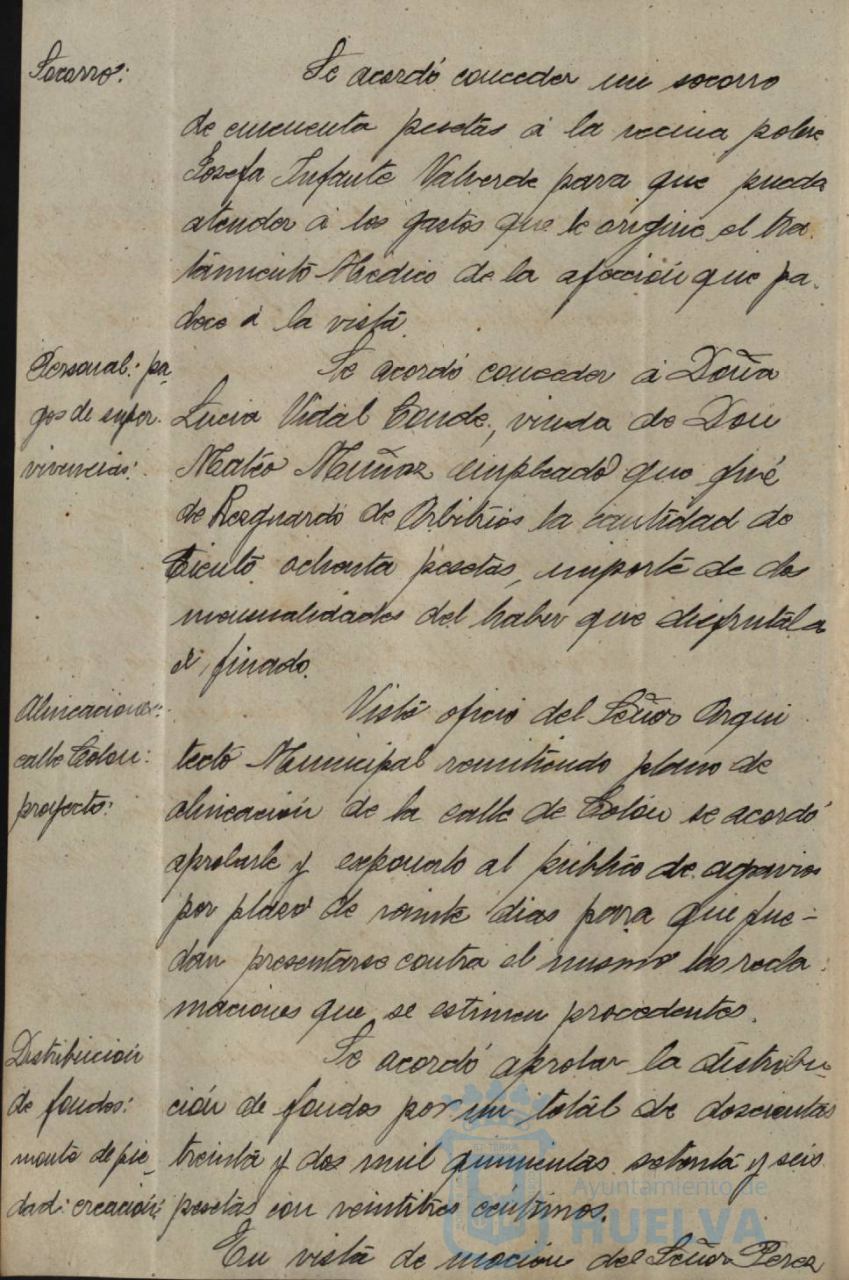 Socorro:
Se acordó conceder un socorro
de cincuenta pesetas á la vecina pobre
Josefa Infante Valverde para que pueda
atender á los gastos que le origine el tra-
tamiento Medico de la afección que pa-
dece á la vista.
Personal: pa-
gos de super-
vivencias:
Se acordó conceder á Doña
Lucia Vidal Conde, viuda de Don
Mateo Muñoz empleado que fué
de Resguardo de Arbitrios la cantidad de
Ciento ochenta pesetas, importe de dos
mensualidades del haber que disfrutaba
el finado.
Alineaciones:
calle Colon:
proyecto:
Visto oficio del Señor Arqui
tecto Municipal remitiendo plano de
alineación de la calle de Colón se acordó
aprobarle y exponerlo al público de agravios
por plazo de veinte dias para que pue-
dan presentarse contra el mismo las recla-
maciones que se estimen procedentes.
Distribución
de fondos:
Se acordó aprobar la distribu-
ción de fondos por un total de doscientas
treinta y dos mil quinientas setenta y seis
pesetas con veintitres céntimos.
monte de pie-
dad: creación:
En vista de moción del Señor Perez
Ayuntamiento de
HUELVA